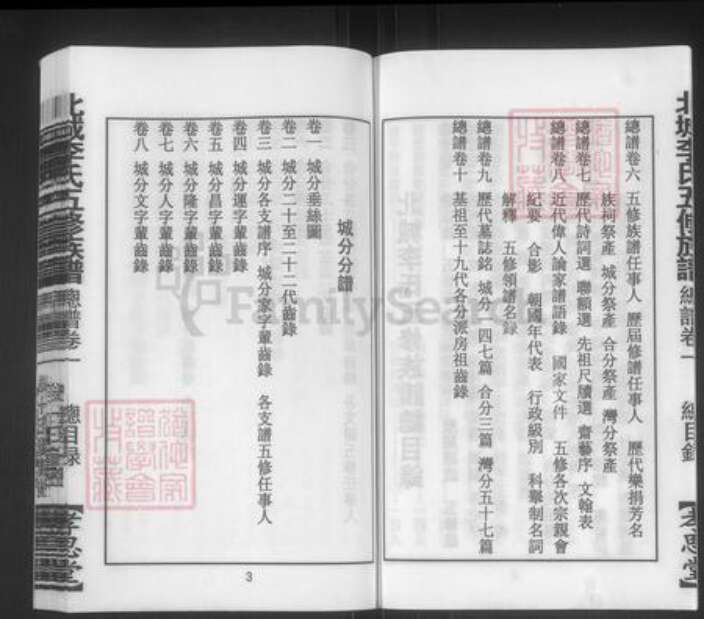 北城李氏五修族譜 總譜卷一 總目錄 【孝思堂】
總譜卷六 五修族譜任事人 歷屆修譜任事人 歷代樂捐芳名
族祠祭產 城分祭產 合分祭產 灣分祭產
總譜卷七 歷代詩詞選 聯額選 先祖尺牘選 壽藝序 文翰表
總譜卷八 近代偉人論家譜語錄 國家文件 五修各次宗親會
紀要 合影 朝國年代表 行政級別 科舉制名詞
解釋 五修領譜名録
總譜卷九 歷代墓誌銘 城分 四七篇 合分三篇 灣分五十七篇
總譜卷十 基祖至十九代各分派房祖齒錄
城分分譜
卷一 城分垂絲圖
卷二 城分二十至二十二代齒錄
卷三 城分各支譜序 城分家字輩齒錄 各支譜五修任事人
卷四 城分運字輩齒錄
卷五 城分昌字輩齒錄
卷六 城分隆字輩齒錄
卷七 城分人字輩齒錄
卷八 城分文字輩齒錄
3
北城李氏五修族譜 總譜卷一 總目录 【孝思堂】
FamilySearch